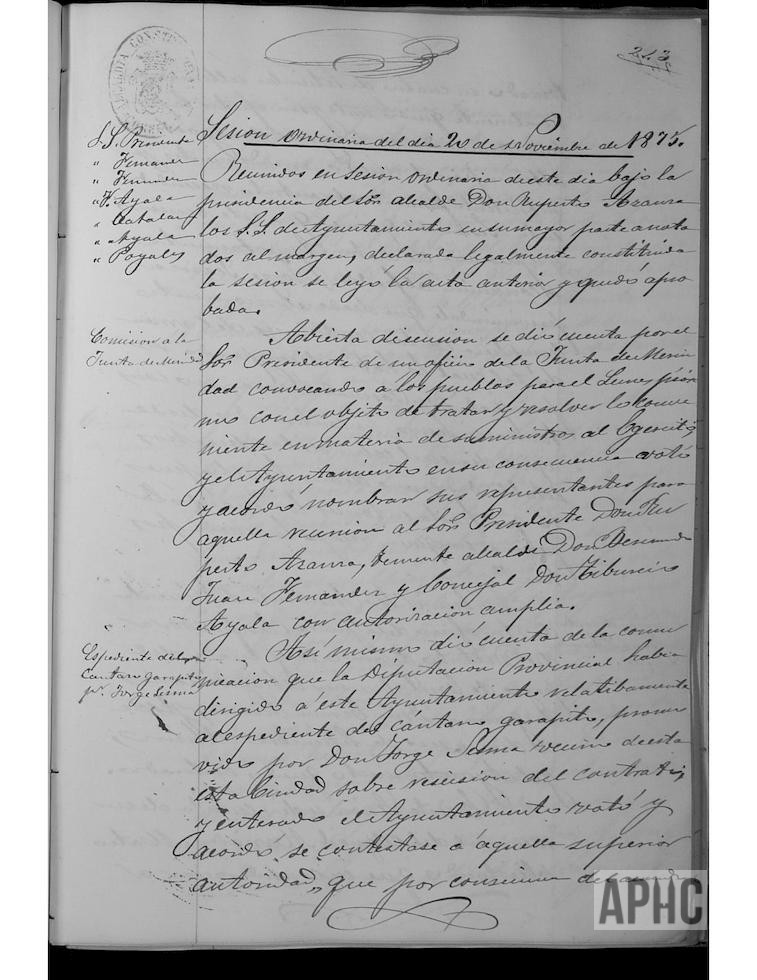 ALCALDIA CONSTITUCIONAL
213
Sesion ordinaria del dia 20 de Noviembre de 1875.
S. S. Presidente
" Fernandez
" Ayala
" Ayala
" Poyales
Reunidos en sesion ordinaria de este dia bajo la
presidencia del Sor. alcalde Don Ruperto Azarra
los S.S. de Ayuntamiento en su mayor parte anota
dos al margen, declarada legalmente constituida
la sesion se leyo la acta anterior y quedó apro
bada.
Comision a la
Junta de Merindad
Abierta discusion se dió cuenta por el
Sor. Presidente de un oficio de la Junta de Merin
dad convocando a los pueblos para el Lunes prósi
mo con el objeto de tratar y resolver lo conve
niente en materia de suministros al Egercito,
y el Ayuntamiento en su consecuencia votó
y acordó nombrar sus representantes para
aquella reunion al Sor. Presidente Don Ru
perto Azarra, teniente alcalde Don
Juan Fernandez y Concejal Don Tiburcio
Ayala con autorizacion amplia.
Espediente del
Cantaro garapito
pr. Jorge Sesma
Asi mismo dió cuenta de la comu
nicacion que la Diputacion Provincial habia
dirigido á este Ayuntamiento relatibamente
al espediente del cántaro garapito, promo
vido por Don Jorge Sesma vecino de esta
esta Ciudad sobre rescision del contrato,
y enterado el Ayuntamiento votó y
acordó se contestase á aquella superior
autoridad, que por
APHC